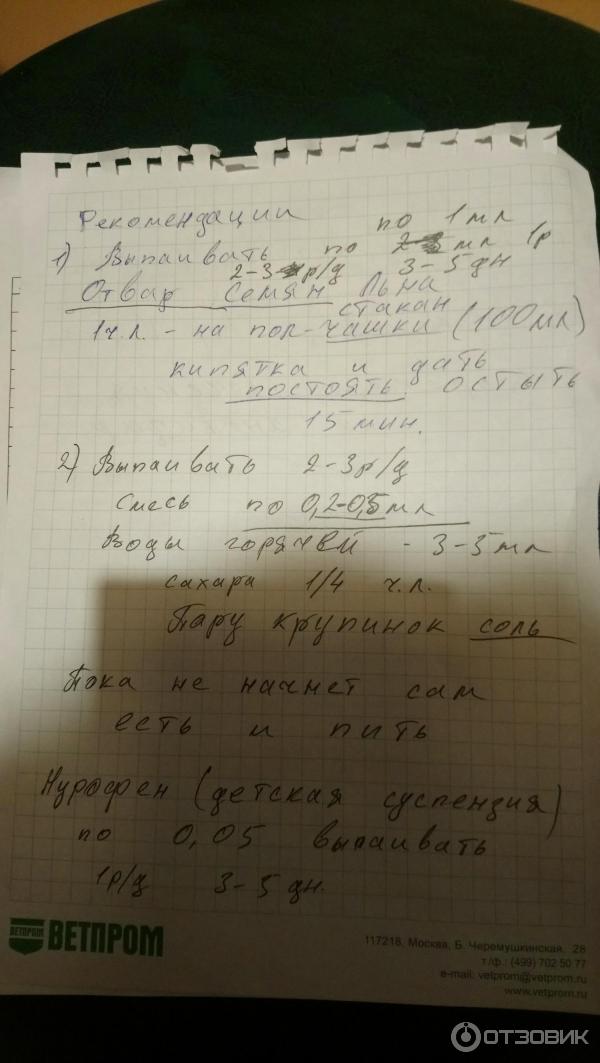 Рекомендации
по 1 мл
1) Выпаивать по мл 1р
2-3 р/д 3-5 дн
Отвар Семян Льна
стакан
1 ч.л. - на пол-чашки (100 мл)
кипятка и дать
постоять остыть
15 мин.
2) Выпаивать 2-3 р/д
смесь по 0,2-0,5 мл
Воды горячей - 3-5 мл
сахара 1/4 ч.л.
Пару крупинок соль
Пока не начнет сам
есть и пить
Нурофен (детская суспензия)
по 0,05 выпаивать
1р/д 3-5 дн.
ВЕТПРОМ ВЕТПРОМ
117218, Москва, Б. Черемушкинская, 28
т/ф.: (499) 702 50 77
e-mail: vetprom@vetprom.ru
www.vetprom.ru
ОТЗОВИК